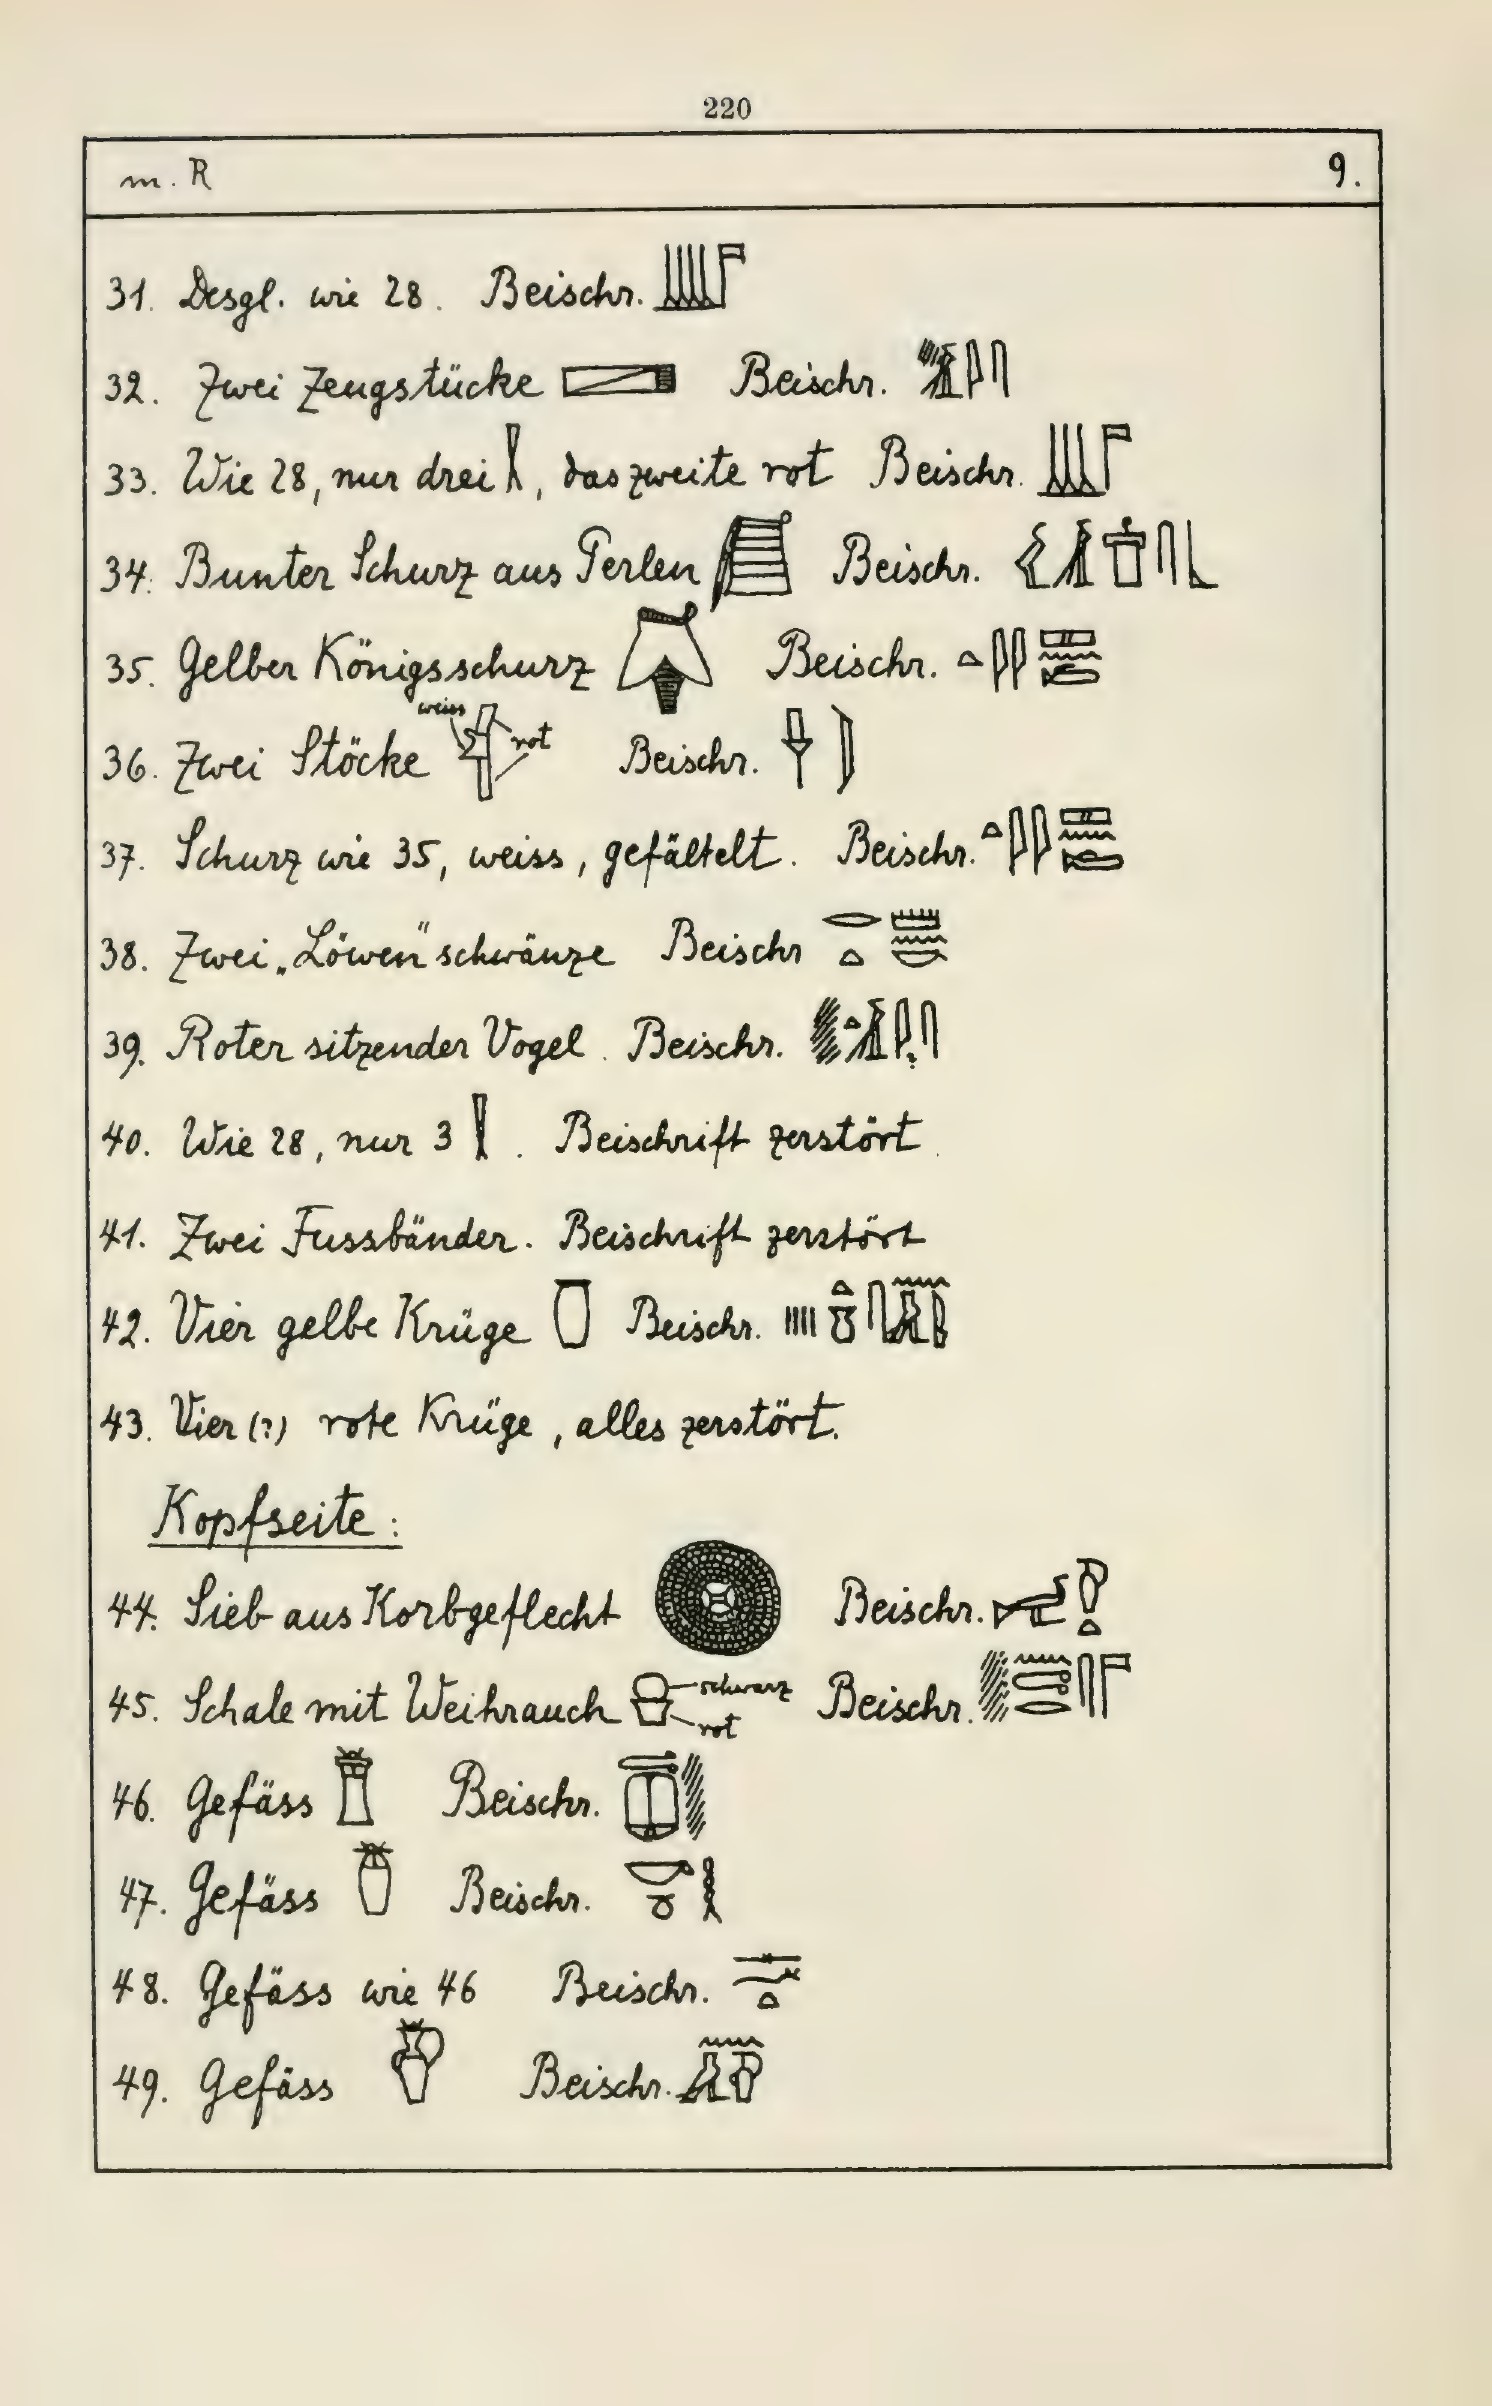 220
m. R 9.
31. Desgl. wie 28. Beischr.
32. Zwei Zeugstücke Beischr.
33. Wie 28, nur drei , das zweite rot Beischr.
34. Bunter Schurz aus Perlen Beischr.
35. Gelber Königsschurz Beischr.
weiss
rot
36. Zwei Stöcke Beischr.
37. Schurz wie 35, weiss, gefältelt. Beischr.
38. Zwei „Löwen" schwänze Beischr
39. Roter sitzender Vogel. Beischr.
40. Wie 28, nur 3 . Beischrift zerstört
41. Zwei Fussbänder. Beischrift zerstört
42. Vier gelbe Krüge Beischr.
43. Vier (?) rote Krüge, alles zerstört.
Kopfseite:
44. Sieb aus Korbgeflecht Beischr.
45. Schale mit Weihrauch schwarz Beischr.
rot
46. Gefäss Beischr.
47. Gefäss Beischr.
48. Gefäss wie 46 Beischr.
49. Gefäss Beischr.